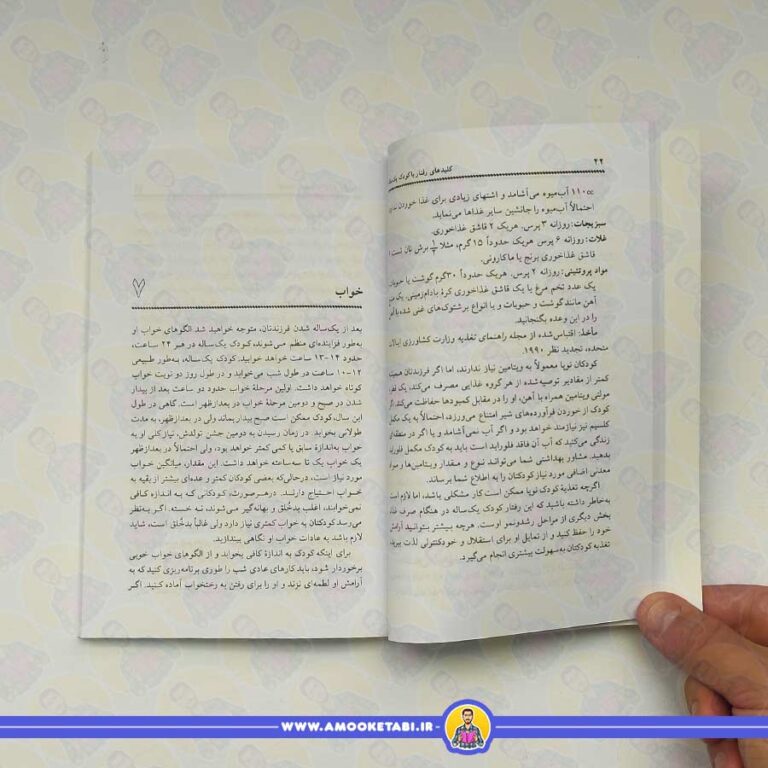 ۲۲
کلیدهای رفتار با کودک
۱۱۰cc آب‌میوه می‌آشامد و اشتهای زیادی برای غذا خوردن
احتمالاً آب‌میوه را جانشین سایر غذاها می‌نماید.
سبزیجات: روزانه ۳ پرس. هریک ۲ قاشق غذاخوری.
غلات: روزانه ۶ پرس هریک حدوداً ۱۵ گرم، مثلاً برش نان تست
قاشق غذاخوری برنج یا ماکارونی.
مواد پروتئینی: روزانه ۲ پرس. هریک حدوداً ۳۰گرم گوشت یا
یک عدد تخم مرغ با یک قاشق غذاخوری کرهٔ بادام‌زمینی.
آهن مانند گوشت و حبوبات و یا انواع برشتوک‌های غنی شده با
را در این وعده بگنجانید.
مأخذ: اقتباس‌شده از مجله راهنمای تغذیه وزارت کشاورزی ایالات
متحده، تجدید نظر ۱۹۹۰.
کودکان نوپا معمولاً به ویتامین نیاز ندارند، اما اگر فرزندتان
کمتر از مقادیر توصیه‌شده از هر گروه غذایی مصرف می‌کند، یک
مولتی ویتامین همراه با آهن، او را در مقابل کمبودها حفاظت می‌کند.
کودک از خوردن فرآورده‌های شیر امتناع می‌ورزد، احتمالاً به یک مکمل
کلسیم نیز نیازمند خواهد بود و اگر آب نمی‌آشامد و یا اگر در
زندگی می‌کنید که آب آن فاقد فلوراید است باید به کودک مکمل فلوراید
بدهید. مشاور بهداشتی شما می‌تواند نوع و مقدار ویتامین‌ها و
معدنی اضافی مورد نیاز کودکتان را به اطلاع شما برساند.
اگرچه تغذیهٔ کودک نوپا ممکن است کار مشکلی باشد، اما لازم است
به‌خاطر داشته باشید که این رفتار کودک یک‌ساله در هنگام صرف غذا
بخش دیگری از مراحل رشدونمو اوست. هرچه بیشتر بتوانید آرامش
خود را حفظ کنید و از تمایل او برای استقلال و خودکنترلی لذت ببرید
تغذیه کودکتان به‌سهولت بیشتری انجام می‌گیرد.
۷
خواب
بعد از یک‌ساله شدن فرزندتان، متوجه خواهید شد الگوهای خواب او
به‌طور فزاینده‌ای منظم می‌شوند، کودک یک‌ساله در هر ۲۴ ساعت،
حدود ۱۴-۱۳ ساعت خواهد خوابید. کودک یک‌ساله، به‌طور طبیعی
۱۲-۱۰ ساعت در طول شب می‌خوابد و در طول روز دو نوبت خواب
کوتاه خواهد داشت. اولین مرحلهٔ خواب حدود دو ساعت بعد از بیدار
شدن در صبح و دومین مرحلهٔ خواب در بعدازظهر است. گاهی در طول
این سال، کودک ممکن است صبح بیدار بماند ولی در بعدازظهر، به مدت
طولانی بخوابد. در زمان رسیدن به دومین جشن تولدش، نیاز کلی او به
خواب به‌اندازهٔ سابق یا کمی کمتر خواهد بود، ولی احتمالاً در بعدازظهر
یک خواب یک تا سه‌ساعته خواهد داشت. این مقدار، میانگین خواب
مورد نیاز است، درحالی‌که بعضی کودکان کمتر و عده‌ای بیشتر از بقیه به
خواب احتیاج دارند. درهرصورت، کودکانی که به اندازه کافی
نمی‌خوابند، اغلب بدخُلق و بهانه‌گیر می‌شوند، نه خسته. اگر به‌نظر
می‌رسد کودکتان به خواب کمتری نیاز دارد ولی غالباً بدخُلق است، شاید
لازم باشد به عادات خواب او نگاهی بیندازید.
برای اینکه کودک به اندازهٔ کافی بخوابد و از الگوهای خواب خوبی
برخوردار شود، باید کارهای عادی شب را طوری برنامه‌ریزی کنید که به
آرامش او لطمه‌ای نزند و او را برای رفتن به رختخواب آماده کنید. اگر
WWW.AMOOKETABI.IR